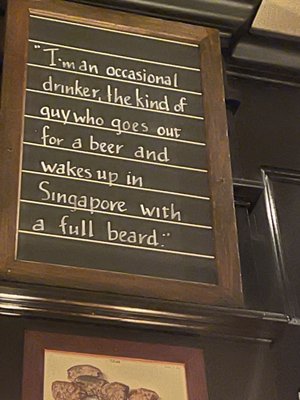 "I'm an occasional
drinker, the kind of
guy who goes out
for a beer and
wakes up in
Singapore with
a full beard."